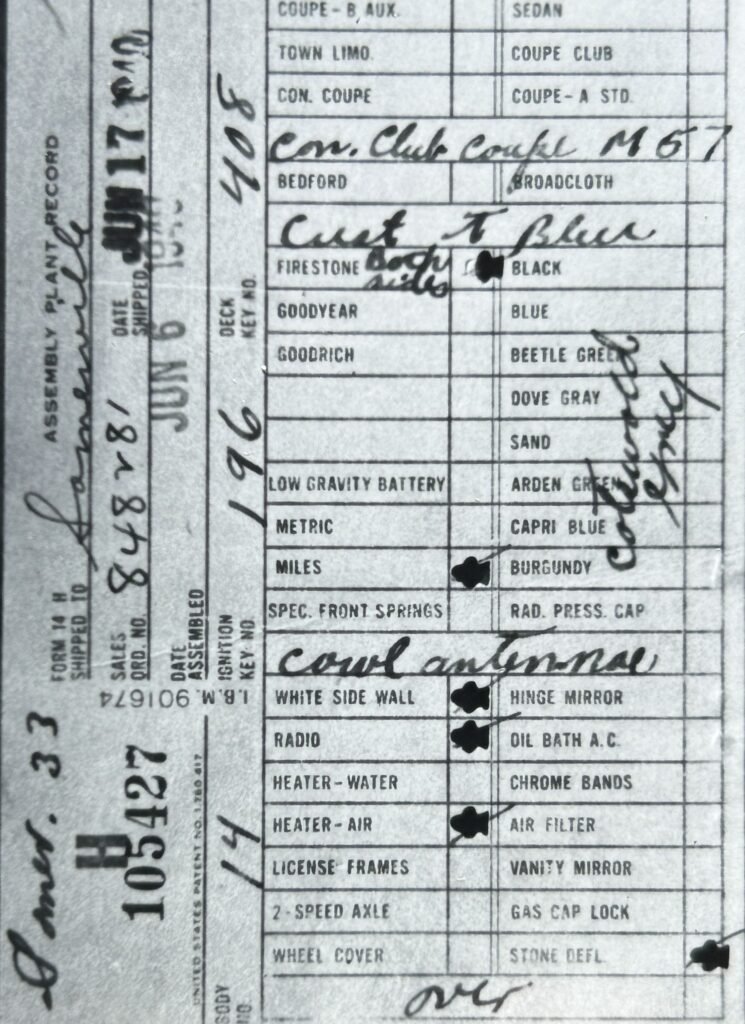 COUPE-B AUX. SEDAN
TOWN LIMO. COUPE CLUB
CON. COUPE COUPE-A STD.
Con. Club Coupe M 57
BEDFORD BROADCLOTH
Cust T Blue
FIRESTONE Both sides BLACK
GOODYEAR BLUE
GOODRICH BEETLE GREEN
DOVE GRAY
SAND
LOW GRAVITY BATTERY ARDEN GREEN
METRIC CAPRI BLUE
MILES BURGUNDY
SPEC. FRONT SPRINGS RAD. PRESS. CAP
cotswold grey
cowl antennae
WHITE SIDE WALL HINGE MIRROR
RADIO OIL BATH A.C.
HEATER-WATER CHROME BANDS
HEATER-AIR AIR FILTER
LICENSE FRAMES VANITY MIRROR
2-SPEED AXLE GAS CAP LOCK
WHEEL COVER STONE DEFL.
over
Somer. 33
FORM 14 H ASSEMBLY PLANT RECORD
SHIPPED TO Somerville
H
105427
SALES ORD. NO. 848281 DATE SHIPPED JUN 17
I.B.M. 901674
DATE ASSEMBLED JUN 6
UNITED STATES PATENT NO. 1,760,417
BODY NO. 14 IGNITION KEY NO. 196 DECK KEY NO. 408